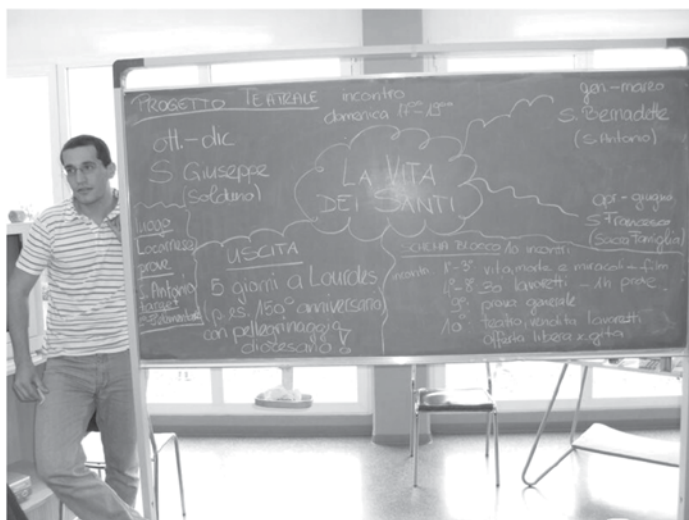 PROGETTO TEATRALE
incontro
domenica 17⁰⁰-19⁰⁰
ott.-dic
S. Giuseppe
(Solduno)
LA VITA
DEI SANTI
gen-marzo
S. Bernadette
(S. Antonio)
apr-giugno
S. Francesco
(Sacra Famiglia)
luogo
Locarnese
prove
S. Antonio
target
USCITA
5 giorni a Lourdes
(p.es. 150° anniversario
con pellegrinaggio
diocesano!)
SCHEMA BLOCCO 10 incontri
incontri 1°-3° vita, morte e miracoli - film
4°-8° 30 lavoretti - 1h prove
9° prova generale
10° teatro, vendita lavoretti
offerta libera x gita